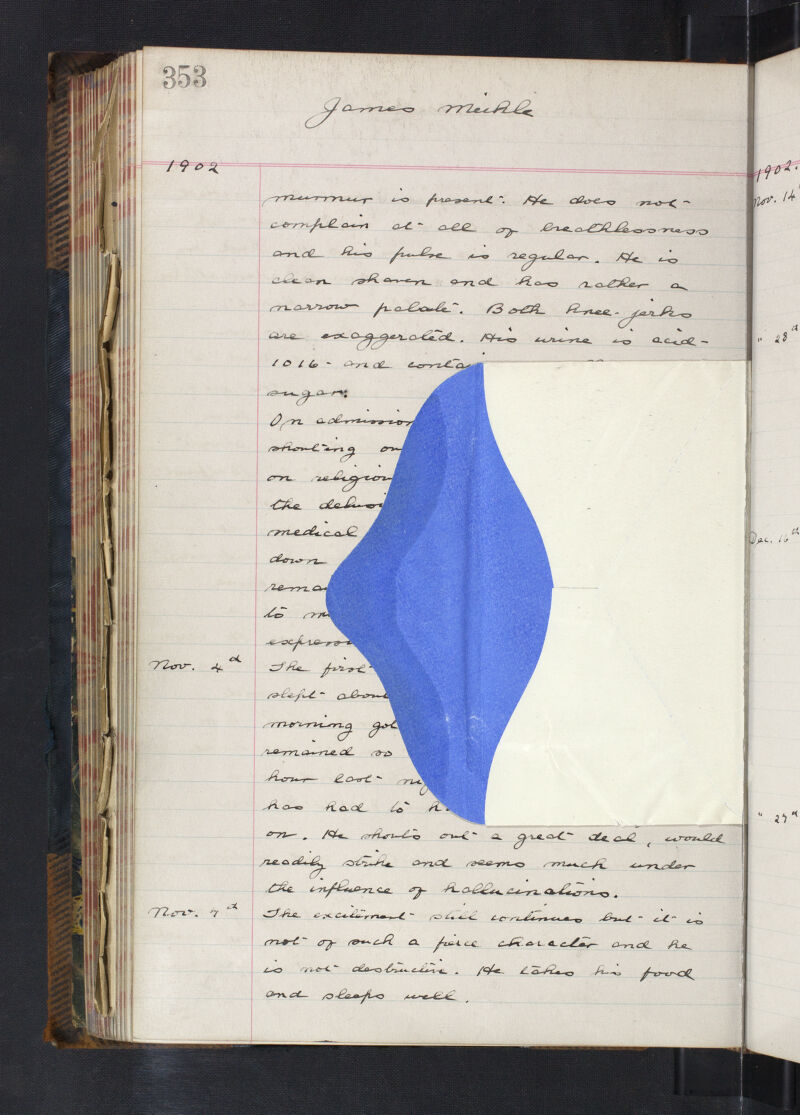 353
James Meikle
1902
murmur is present. He does not
complain at all of breathlessness
and his pulse is regular. He is
clean shaven and has rather a
narrow palate. Both knee-jerks
are exaggerated. His urine is acid-
1016- and
sugar.
On admission
shouting
on religion
the
medical
down
to
The first
slept about
morning got
remained so
hour last
has had to
on. He shouts out a great deal, would
readily strike and seems much under
the influence of hallucinations.
Nov. 4th
Nov. 7th
The excitement still continues but it is
not of such a fierce character and he
is not destructive. He takes his food
and sleeps well.
1902.
Nov. 14
" 28th
Dec. 16th
" 27th